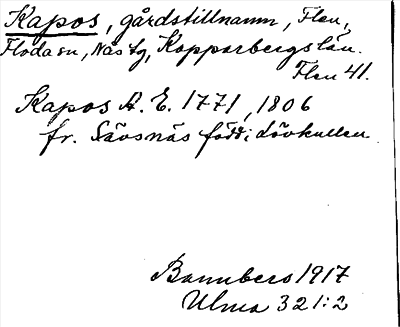 Kapos, gårdstillnamn, Flen,
Floda sn, Näs tg, Kopparbergs län.
Flen 41.
Kapos A. E. 1771, 1806
fr. Sävsnäs född i Lövkullen
Bannbers 1917
Ulma 321:2